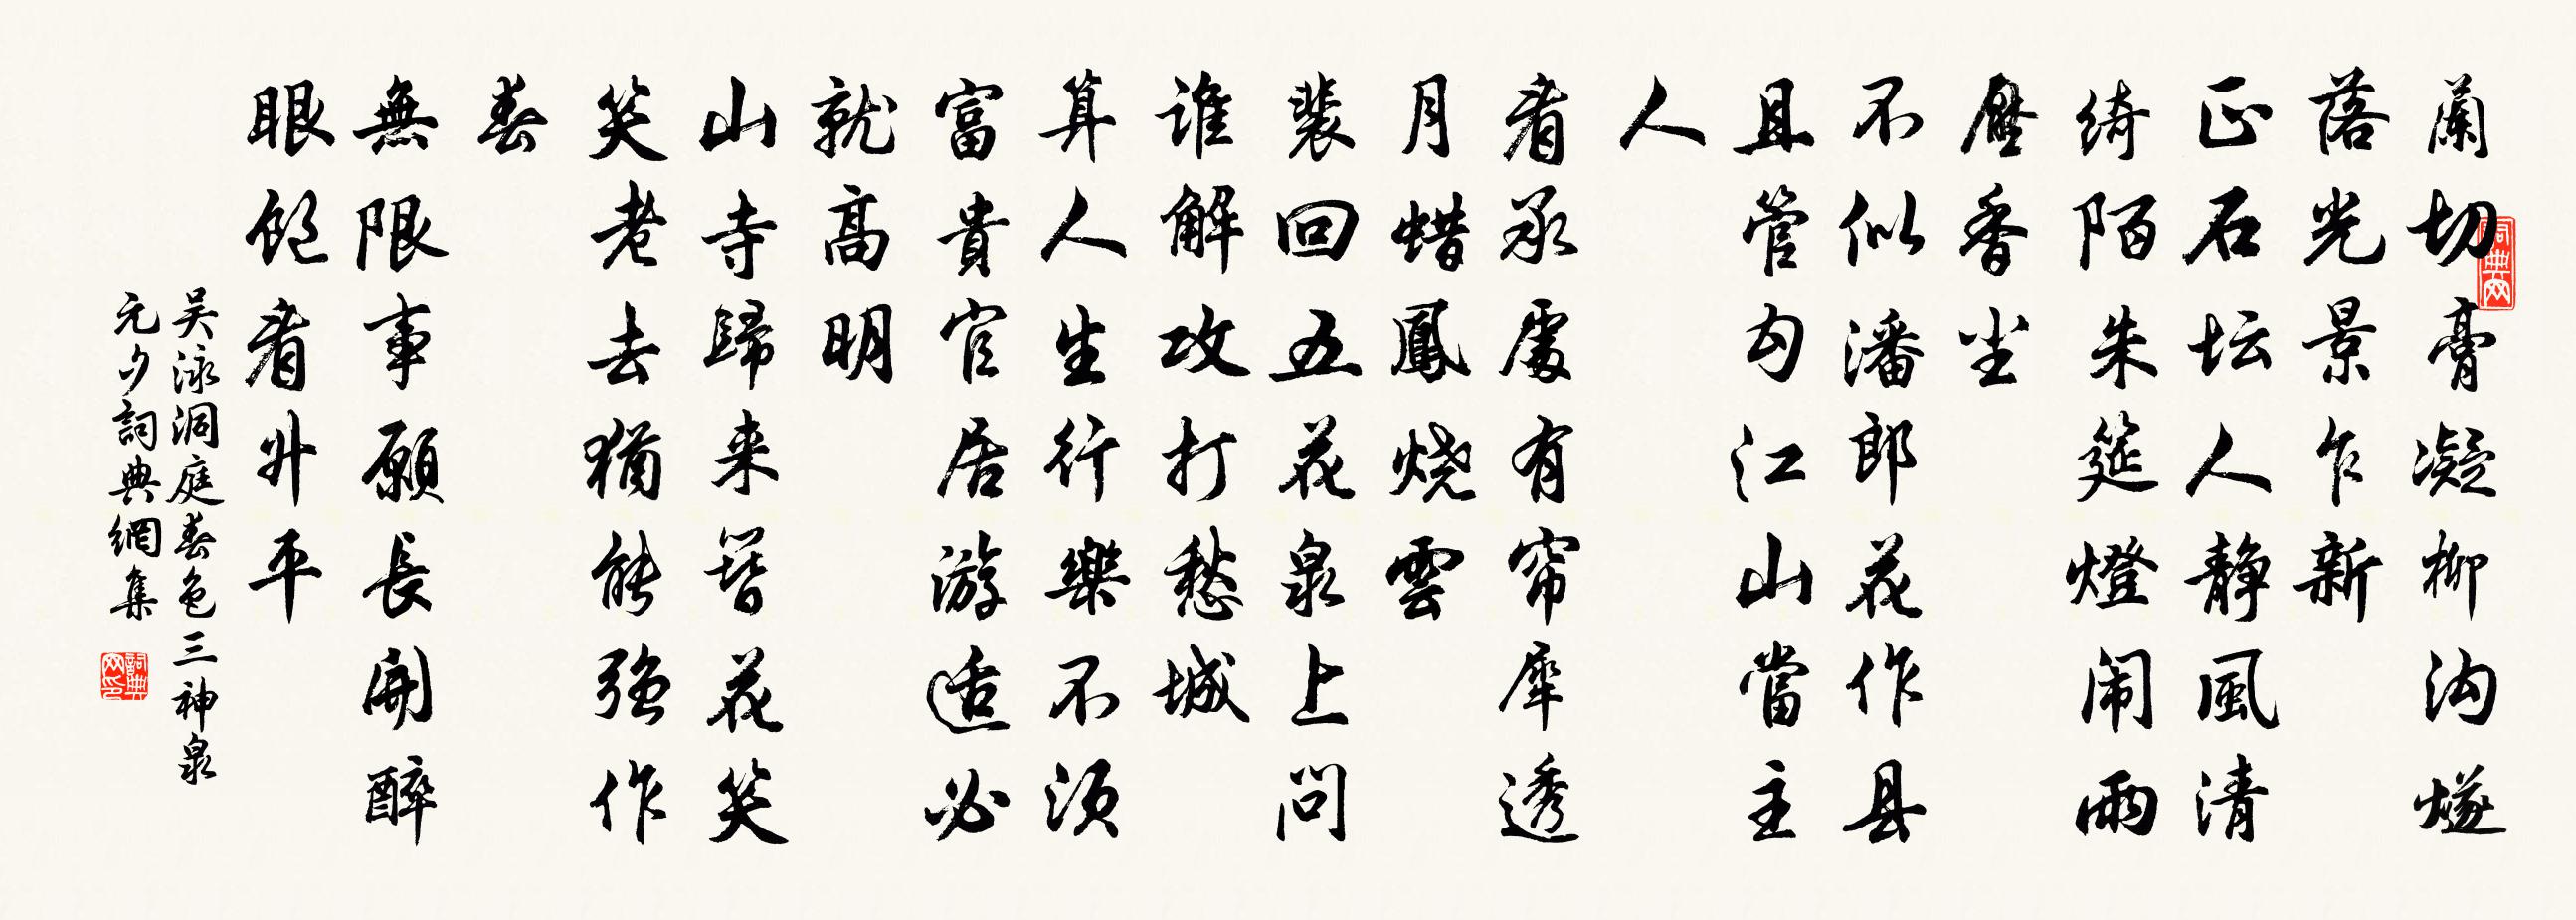 蘭切膏凝柳沟燧
落光景乍新
正石坛人静風清
绮陌朱筵燈闹雨
壓香尘
不似潘郎花作县
且管勾江山當主
人
看承處有帘犀透
月蜡鳳烧雲
裴回五花泉上問
谁解攻打愁城
算人生行樂不须
富貴官居游适必
就高明
山寺歸来簪花笑
笑老去猶能强作
春
無限事願長開醉
眼飽看升平
吴泳洞庭春色三神泉
元夕詞典網集
詞典网
詞典网印